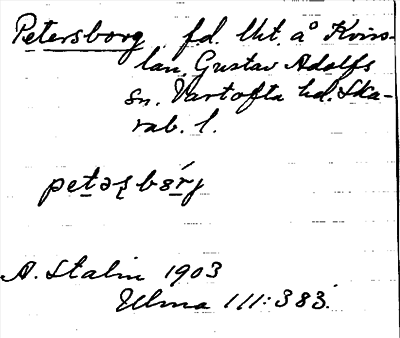 Petersborg f.d. lht. å Kvins-
lan, Gustav Adolfs
sn. Vartofta hd. Ska-
rab. l.
petəʂbɞrj
A. Stalin 1903
Ulma 111:383.